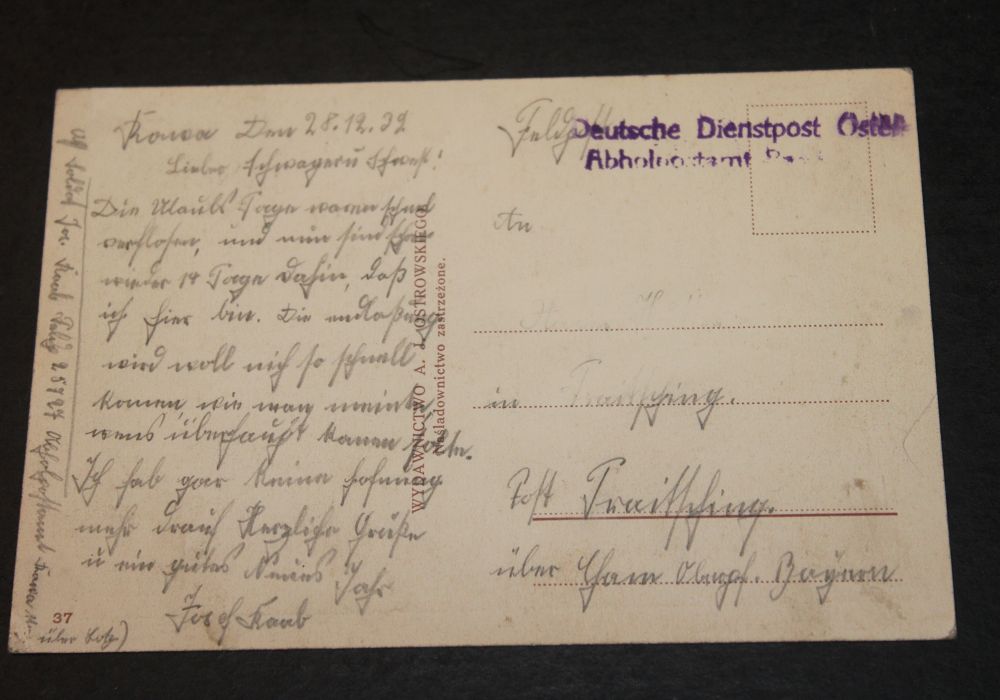 Rawa Den 28.12.39
Lieber Schwager u Schwest!
Die Ulaubs Tage waren schnel
verflosen, und nun sind schon
wieder 14 Tage dahin, daß
ich hier bin. Die endlaßung
wird woll nich so schnell
komen wie man meinte
wens überhaupt komen sollte.
Ich hab gar keine hofnung
mehr drauf Herzliche Grüße
u ein gutes Neues Jahr
Josef Raab
Sold Jos. Raab
Abholpostamt Rawa
über
37
WYDAWNICTWO A. J. OSTROWSKIEGO
Naśladownictwo zastrzeżone.
Feldpost
Deutsche Dienstpost Osten
Abholpostamt
An
in Traitsching.
Post Traitsching.
über Cham Obpf. Bayern